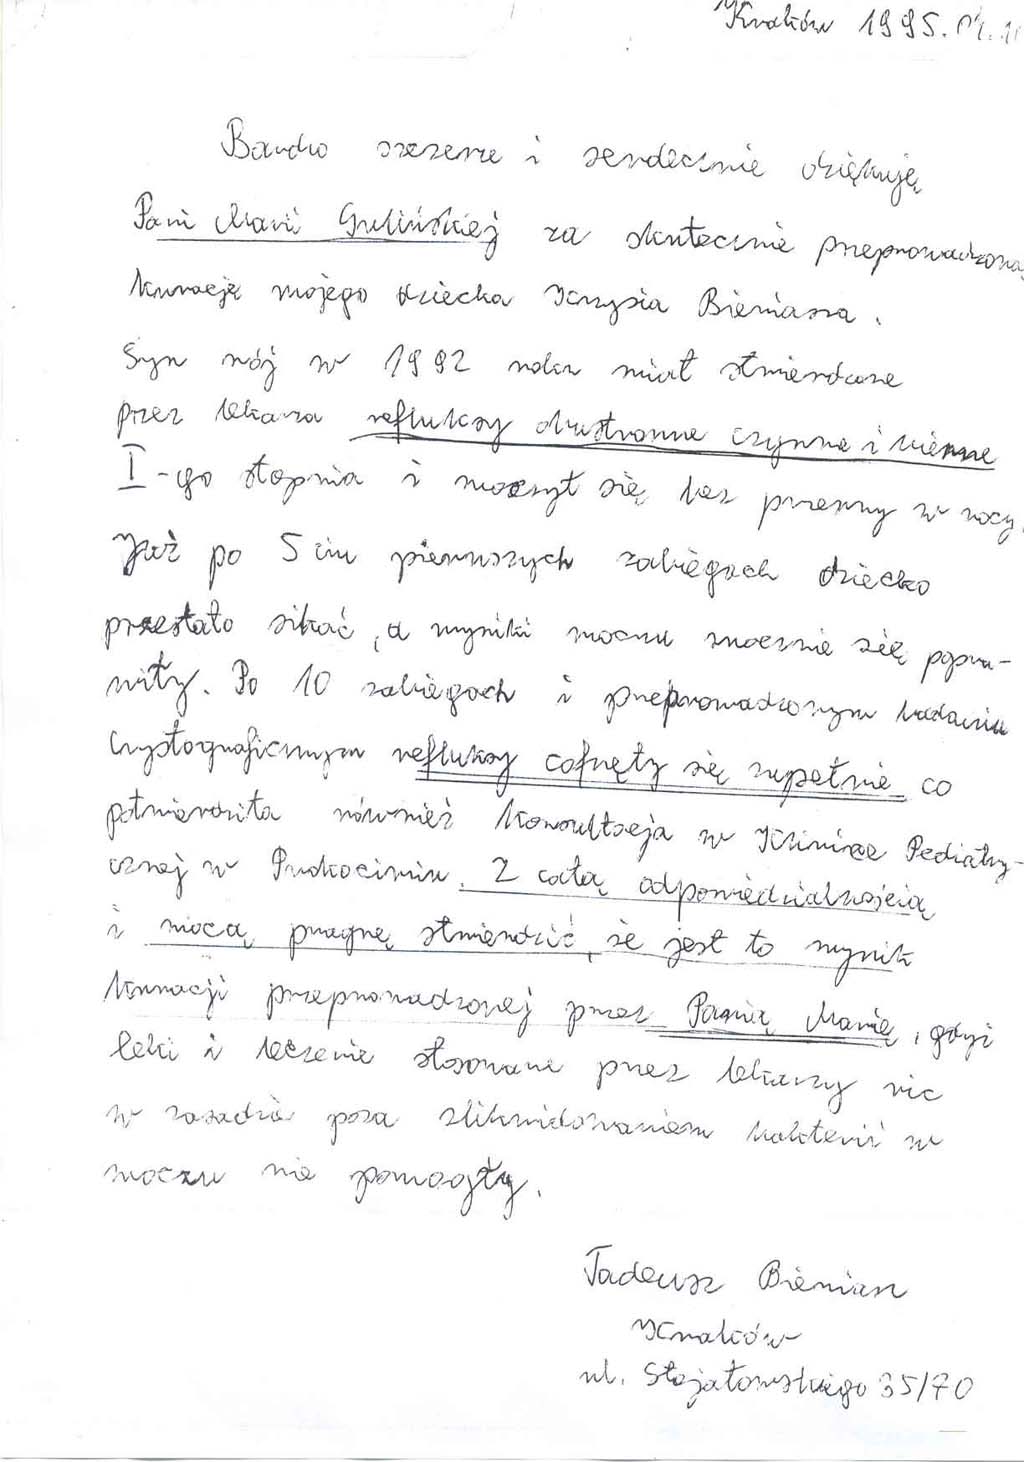 Kraków 1995.
Bardzo szczerze i serdecznie dziękuję
Pani Marii Gulińskiej za skutecznie przeprowadzoną
kurację mojego dziecka Krzysia Bieniasza.
Syn mój w 1992 roku miał stwierdzone
przez lekarza refluksy obustronne czynne i bierne
I-go stopnia i moczył się bez przerwy w nocy.
Już po 5 ciu pierwszych zabiegach dziecko
przestało sikać, a wyniki moczu znacznie się popra-
wiły. Po 10 zabiegach i przeprowadzonym badaniu
refluksy cofnęły się zupełnie co
potwierdziła również konsultacja w Klinice Pediatry-
cznej w Prokocimiu. Z całą odpowiedzialnością
i mocą pragnę stwierdzić, że jest to wynik
kuracji przeprowadzonej przez Panią Marię, gdyż
leki i leczenie stosowane przez lekarzy nic
w zasadzie poza zlikwidowaniem bakterii w
moczu nie pomogły.
Tadeusz Bieniasz
Kraków
ul. Stojałowskiego 35/70